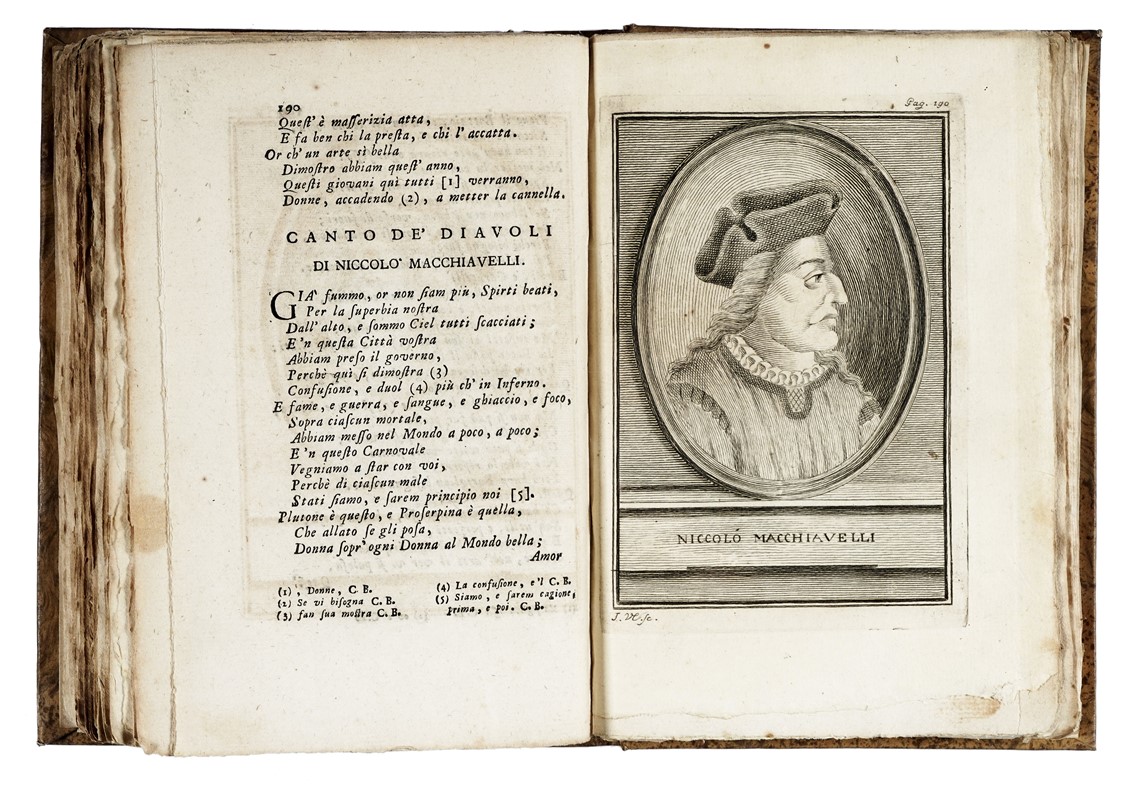 190
Queſt' è maſſerizia atta,
E fa ben chi la preſta, e chi l' accatta.
Or ch' un arte sì bella
Dimoſtro abbiam queſt' anno,
Queſti giovani quì tutti [1] verranno,
Donne, accadendo (2), a metter la cannella.
CANTO DE' DIAVOLI
DI NICCOLO' MACCHIAVELLI.
GIA' fummo, or non ſiam più, Spirti beati,
Per la ſuperbia noſtra
Dall' alto, e ſommo Ciel tutti ſcacciati;
E 'n queſta Città voſtra
Abbiam preſo il governo,
Perchè quì ſi dimoſtra (3)
Confuſione, e duol (4) più ch' in Inferno.
E fame, e guerra, e ſangue, e ghiaccio, e foco,
Sopra ciaſcun mortale,
Abbiam meſſo nel Mondo a poco, a poco;
E 'n queſto Carnovale
Vegniamo a ſtar con voi,
Perchè di ciaſcun male
Stati ſiamo, e ſarem principio noi [5].
Plutone è queſto, e Proſerpina è quella,
Che allato ſe gli poſa,
Donna ſopr' ogni Donna al Mondo bella;
Amor
(1) ', Donne, C. B.
(2) Se vi biſogna C. B.
(3) fan sua moſtra C. B.
(4) La confuſione, e'l C. B.
(5) Siamo, e ſarem cagione,
prima, e poi. C. B.
Pag. 190
NICCOLÓ MACCHIAVELLI